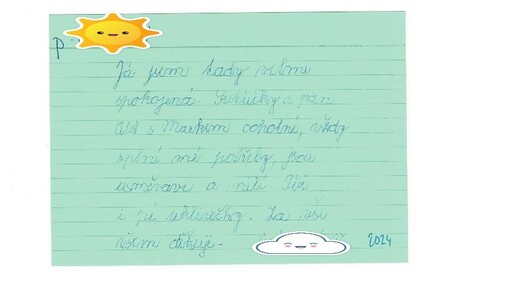 P
Já jsem tady velmi
spokojená. Sestřičky a pan
Aleš s Markem ochotní, vždy
splní mé potřeby, jsou
usměvaví a milí. Též
i ty uklízečky. Za vši
všem děkuje -
2024